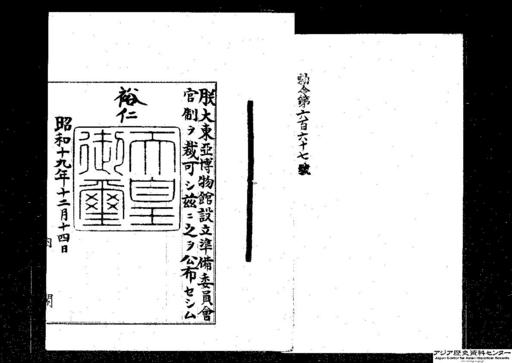 勅令第六百六十七號
朕大東亞博物館設立準備委員會
官制ヲ裁可シ茲ニ之ヲ公布セシム
裕仁
天皇
御璽
昭和十九年十二月十四日
内閣
アジア歴史資料センター
Japan Center for Asian Historical Records